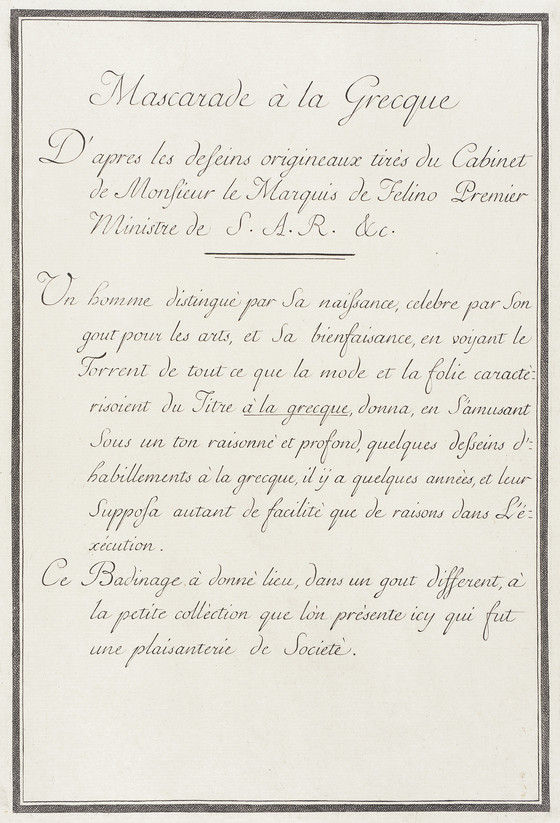 Mascarade à la Grecque
D'apres les deſseins origineaux tirès du Cabinet
de Monſieur le Marquis de Felino Premier
Ministre de S. A. R. &c.
Un homme distinguè par Sa naiſsance, celebre par Son
gout pour les arts, et Sa bienfaisance, en voÿant le
Torrent de tout ce que la mode et la folie caractè-
risoient du Titre à la grecque, donna, en S'amusant
Sous un ton raisonnè et profond, quelques deſseins d'-
habillements à la grecque, il ÿ a quelques annèes, et leur
Suppoſa autant de facilitè que de raisons dans L'è-
xécution.
Ce Badinage à donnè lieu, dans un gout different, à
la petite collèction que lòn présente icy qui fut
une plaisanterie de Societè.